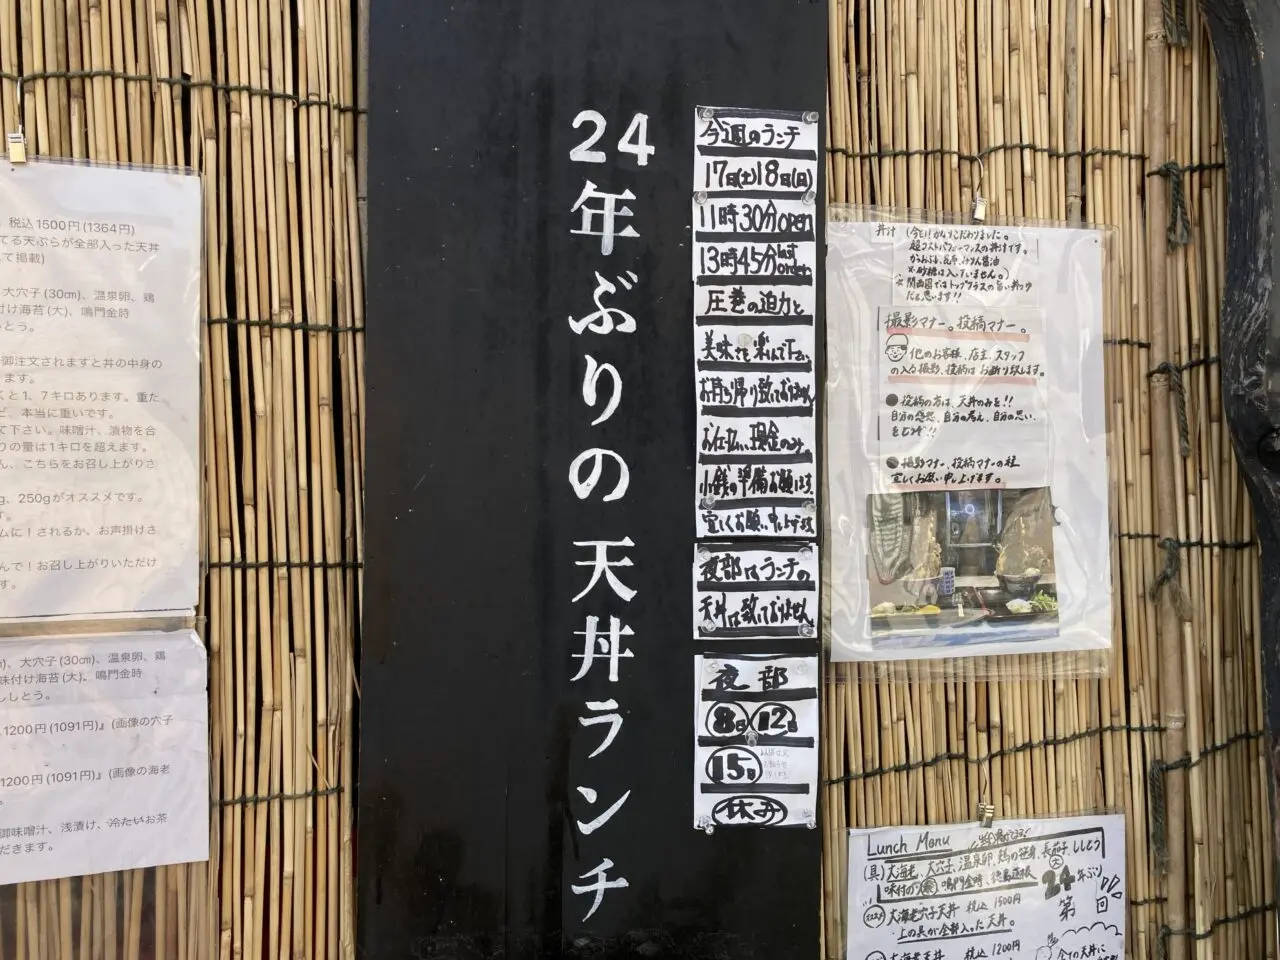 税込1500円(1364円)
てる天ぷらが全部入った天丼
て掲載)
大穴子(30㎝)、温泉卵、鶏
付け海苔(大)、鳴門金時
とう。
御注文されますと丼の中身の
ます。
くと1、7キロあります。重た
ど、本当に重いです。
て下さい。味噌汁、漬物を合
りの量は1キロを超えます。
ん、こちらをお召し上がりさ
g、250gがオススメです。
す。
ムに!されるか、お声掛けさ
んで!お召し上がりいただけ
す。
)、大穴子(30㎝)、温泉卵、鶏
味付け海苔(大)、鳴門金時
ししとう。
1200円(1091円)』(画像の穴子
1200円(1091円)』(画像の海老
御味噌汁、浅漬け、冷たいお茶
だきます。
24年ぶりの天丼ランチ
今週のランチ
17日(土)18日(日)
11時30分open
13時45分last order
圧巻の迫力と
美味さを楽しんで下さい
お持ち帰り致しておりません
お仕払い現金のみ
小銭の準備お願います。
宜しくお願い申し上げます
夜部はランチの
天丼は致しておりません
夜部
8日12日
15日
休み
丼汁(今回!かなりこだわりました。
超コストパフォーマンスの丼汁です。
かつおぶし、昆布、みりん、醤油
※砂糖は入っていません。)
※関西圏ではトップクラスの旨い丼つゆ
だと思います!!
撮影マナー。投稿マナー。
他のお客様、店主、スタッフ
の入る撮影、投稿はお断り致します。
●投稿の方は、天丼のみを!!
自分の感想、自分の考え、自分の思い、
をどうぞ!!
●撮影マナー、投稿マナーの程
宜しくお願い申し上げます。
Lunch Menu
(具)大海老、大穴子、温泉卵、鶏の笹身、長茄子、ししとう
味付のり(大)鳴門金時、徳島蓮根
24年ぶり
第 回
大海老穴子天丼 税込1500円
上の具が全部入った天丼。
大海老天丼 税込1200円
全ての天丼に